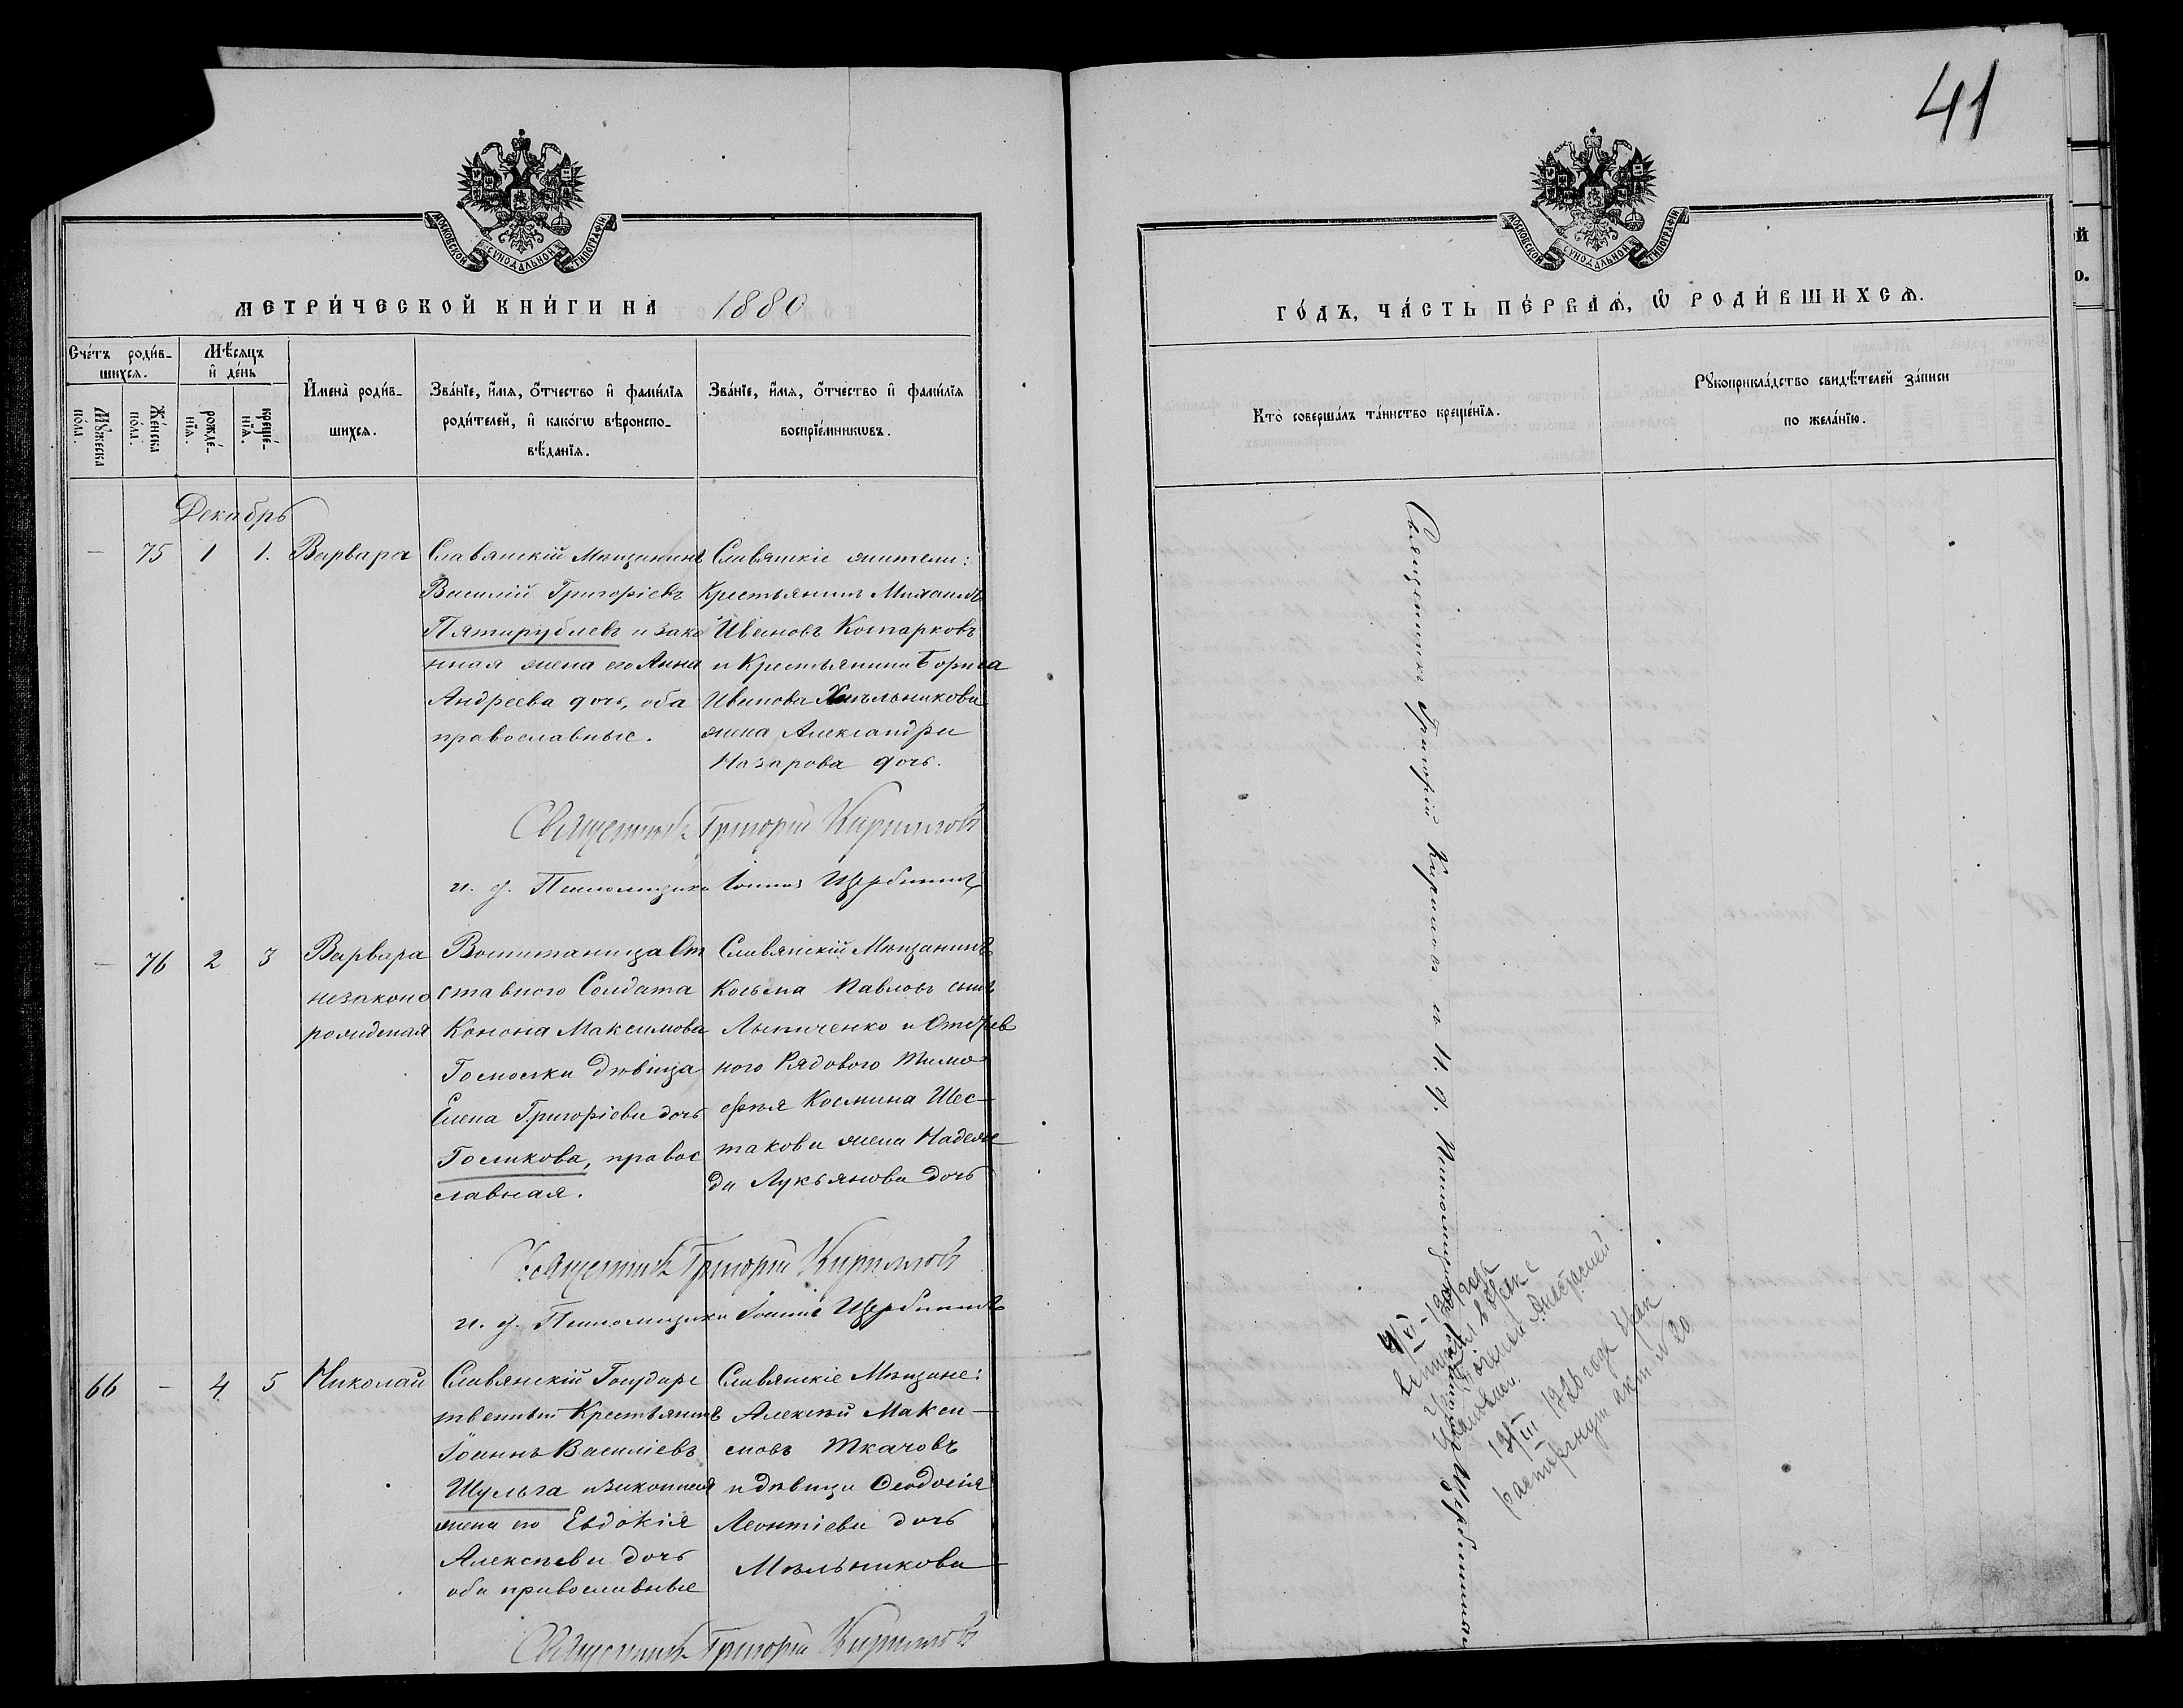 41
МОСКОВСКОЙ СУНОДАЛЬНОЙ ТИПОГРАФІИ
МЕТРИ́ЧЕСКОЙ КНИ́ГИ НА 1880
Сче́тъ роди́вшихсѧ.
Мѣ́сѧцъ и҆ де́нь
Мꙋ́жеска по́ла.
Же́нска по́ла.
рожде́нїѧ.
креще́нїѧ.
И҆мена̀ роди́вшихсѧ.
Зва́нїе, и҆́мѧ, ѻ҆́тчество и҆ фами́лїѧ
роди́телей, и҆ како́гѡ вѣроиспо-
вѣ́данїѧ.
Зва́нїе, и҆́мѧ, ѻ҆́тчество и҆ фами́лїѧ
воспрїе́мникѡвъ.
Декабрь
— 75 1 1. Варвара
Славянскій Мѣщанинъ
Василій Григорьевъ
Пятирублевъ и зако
нная жена его Анна
Андреева дочь, оба
православные.
Славянскіе жители:
Крестьянинъ Михаилъ
Ивановъ Комарковъ
и Крестьянина Бориса
Иванова Хмѣльникова
жена Александра
Назарова дочь.
Священникъ Григорій Кирилловъ
и. д. Псаломщика Іоаннъ Щербининъ
— 76 2 3 Варвара
незаконо
рожденая
Воспитаница От
ставного Солдата
Конона Максимова
дѣвица
Елена Григоріева дочь
Голикова, правос
славная.
Славянскій Мѣщанинъ
Косьма Павловъ сынъ
Лыпиченко и Отстав
ного Рядового Тимо
фея Космина Шес-
такова жена Надеж
да Лукьянова дочь
Священникъ Григорій Кирилловъ
и. д. Псаломщика Іоаннъ Щербининъ
66 — 4 5 Николай
Славянскій Государс
твенный Крестьянинъ
Іоаннъ Василіевъ
Шульга и законная
жена его Евдокія
Алексѣева дочь
оба православные
Славянскіе Мѣщане:
Алексѣй Макси-
мовъ Ткачовъ
и дѣвица Ѳеодосія
Леонтіева дочь
Мѣльникова
Священникъ Григорій Кирилловъ
ГО́ДЪ, ЧА́СТЬ ПЕ́РВАѦ, Ѽ РОДИ́ВШИХСѦ.
Кто̀ соверша́лъ та́инство креще́нїѧ.
Рꙋкоприкла́дство свидѣ́телей за́писи
по жела́нїю.
Священникъ Григорій Кирилловъ и И. д. Псаломщика Іоаннъ Щербининъ
вступил в брак с
Анастасией
13/III-1926 года брак
расторгнут акт № 20